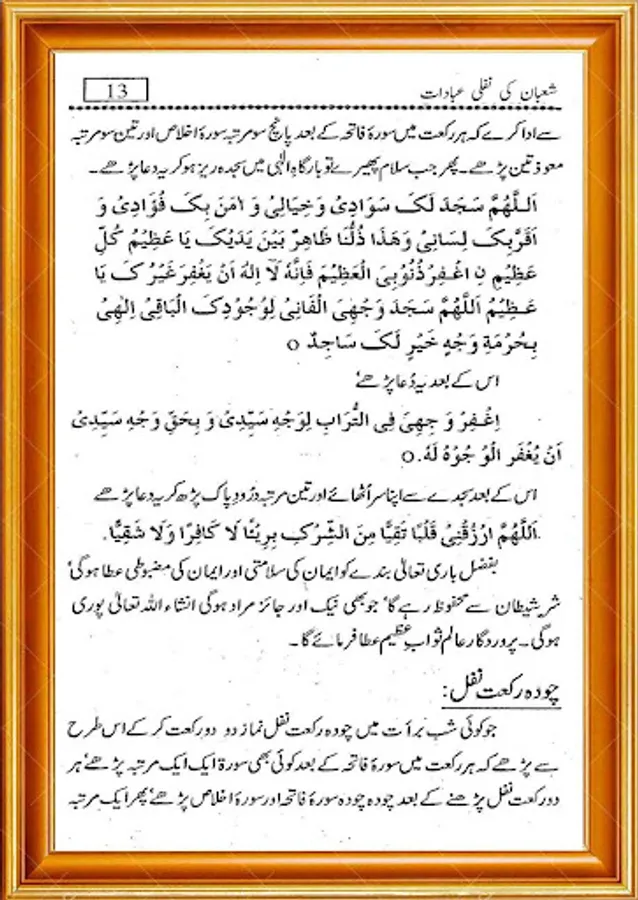 شعبان کی نفلی عبادات
13
سے ادا کرے کہ ہر رکعت میں سورۂ فاتحہ کے بعد پانچ سو مرتبہ سورۂ اخلاص اور تین سو مرتبہ
معوذتین پڑھے۔ پھر جب سلام پھیرے تو بارگاہِ الٰہی میں سجدہ ریز ہو کر یہ دعا پڑھے۔
اَللّٰهُمَّ سَجَدَ لَکَ سَوَادِیْ وَ خِیَالِیْ وَ اٰمَنَ بِکَ فُؤَادِیْ وَ
اَقَرَّبِکَ لِسَانِیْ وَهٰذَا ذُلُّنَا ظَاهِرٌ بَیْنَ یَدَیْکَ یَا عَظِیْمُ کُلِّ
عَظِیْمٍ نِ اغْفِرْ ذُنُوْبِیَ الْعَظِیْمَ فَاِنَّهٗ لَا اِلٰهَ اَنْ یَغْفِرَ غَیْرُ کَ یَا
عَظِیْمُ اَللّٰهُمَّ سَجَدَ وَجْهِیَ الْفَانِیْ لِوُجُوْدِکَ الْبَاقِیْ اِلٰهِیْ
بِحُرْمَةِ وَجْهٍ خَیْرٍ لَکَ سَاجِدٌ ○
اس کے بعد یہ دُعا پڑھے
اِغْفِرْ وَ جْهِیَ فِی التُّرَابِ لِوَجْهِ سَیِّدِیْ وَ بِحَقِّ وَجْهِ سَیِّدِیْ
اَنْ یُغْفَرَ الْوُ جُوْهُ لَهٗ.○
اس کے بعد سجدے سے اپنا سر اُٹھائے اور تین مرتبہ درُودِ پاک پڑھ کر یہ دعا پڑھے
اَللّٰهُمَّ ارْزُقْنِیْ قَلْبًا تَقِیًّا مِنَ الشِّرْکِ بِرِیْئًا لَا کَافِرًا وَلَا شَقِیًّا.
بفضل باری تعالیٰ بندے کو ایمان کی سلامتی اور ایمان کی مضبوطی عطا ہوگی'
شر شیطان سے محفوظ رہے گا' جو بھی نیک اور جائز مراد ہوگی انشاء اللہ تعالیٰ پوری
ہوگی۔ پروردگار عالم ثوابِ عظیم عطا فرمائے گا۔
چودہ رکعت نفل:
جو کوئی شب برأت میں چودہ رکعت نفل نماز دو دو رکعت کر کے اس طرح
سے پڑھے کہ ہر رکعت میں سورۂ فاتحہ کے بعد کوئی بھی سورۃ ایک ایک مرتبہ پڑھے' ہر
دو رکعت نفل پڑھنے کے بعد چودہ چودہ سورۂ فاتحہ اور سورۂ اخلاص پڑھے' پھر ایک مرتبہ